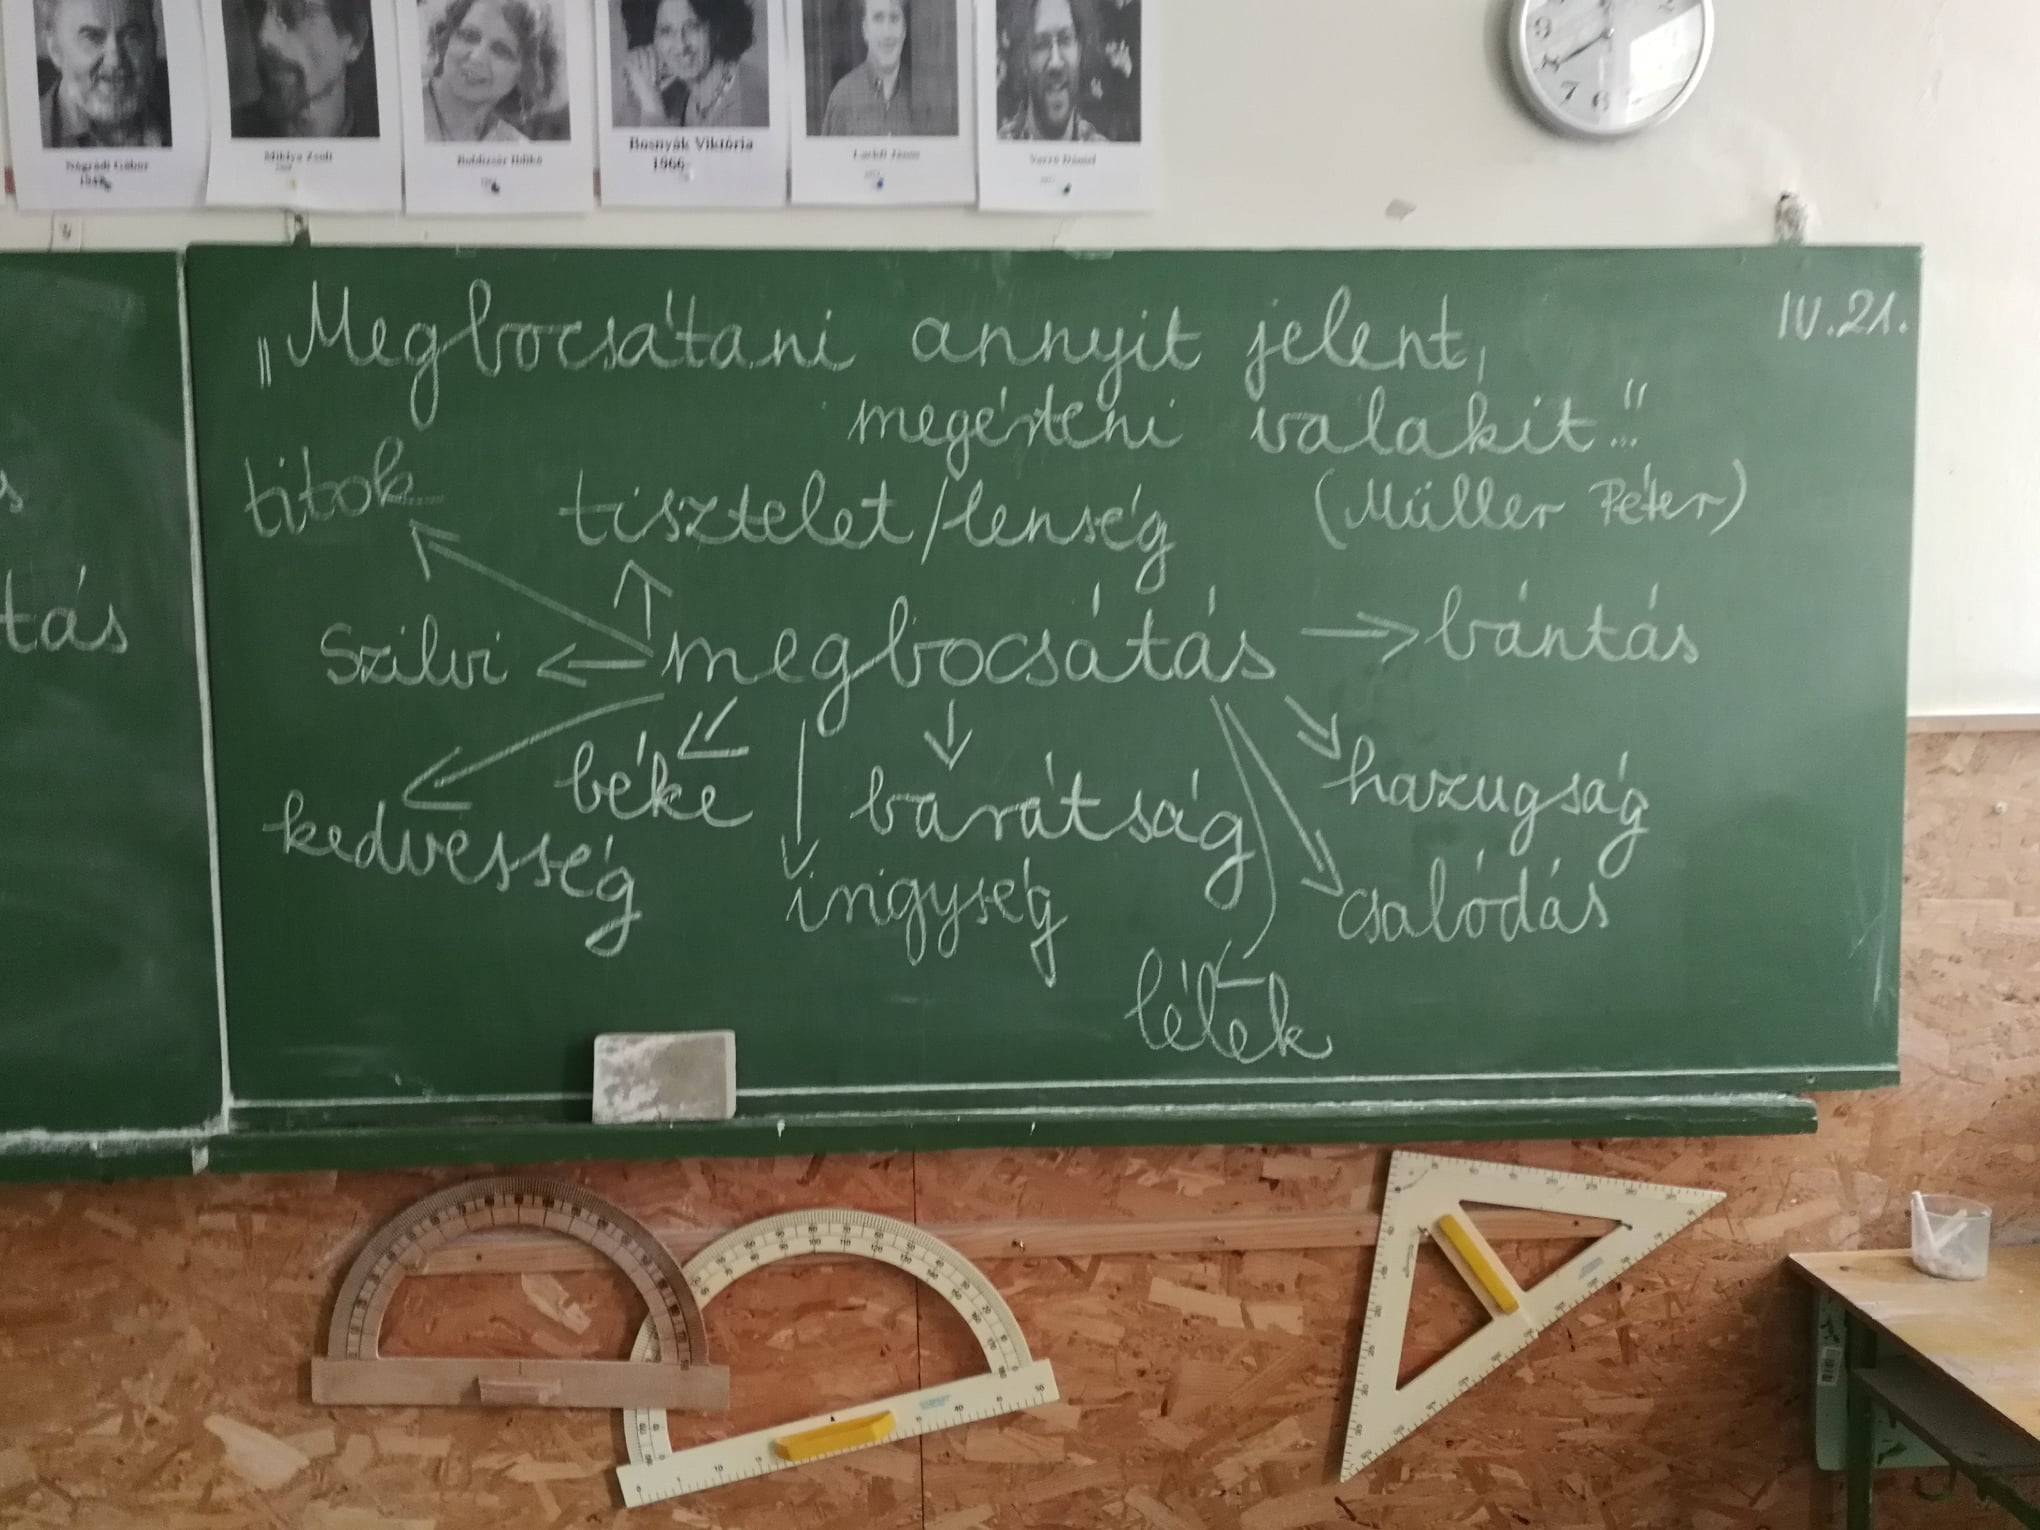 Nógrádi Gábor
Miklya Zsolt
Boldizsár Ildikó
Bosnyák Viktória
1966-
Lackfi János
Varró Dániel
IV.21.
„Megbocsátani annyit jelent,
megérteni valakit..."
(Müller Péter)
titok
tisztelet/lenség
Szilvi
megbocsátás
bántás
tás
béke
barátság
hazugság
kedvesség
irigység
csalódás
lélek